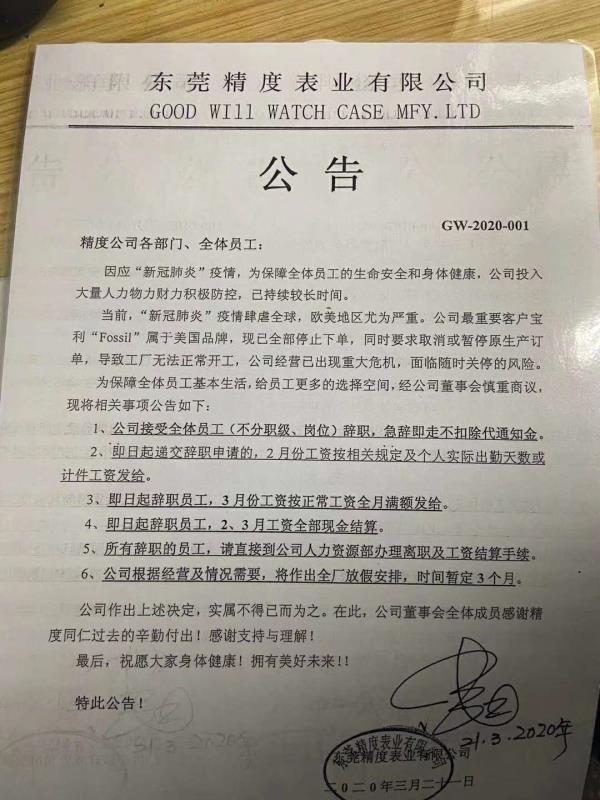 东莞精度表业有限公司
GOOD WIll WATCH CASE MFY.LTD
公告
GW-2020-001
精度公司各部门、全体员工：
因应“新冠肺炎”疫情，为保障全体员工的生命安全和身体健康，公司投入
大量人力物力财力积极防控，已持续较长时间。
当前，“新冠肺炎”疫情肆虐全球，欧美地区尤为严重。公司最重要客户宝
利“Fossil”属于美国品牌，现已全部停止下单，同时要求取消或暂停原生产订
单，导致工厂无法正常开工，公司经营已出现重大危机，面临随时关停的风险。
为保障全体员工基本生活，给员工更多的选择空间，经公司董事会慎重商议，
现将相关事项公告如下：
1、公司接受全体员工（不分职级、岗位）辞职，急辞即走不扣除代通知金。
2、即日起递交辞职申请的，2月份工资按相关规定及个人实际出勤天数或
计件工资发给。
3、即日起辞职员工，3月份工资按正常工资全月满额发给。
4、即日起辞职员工，2、3月工资全部现金结算。
5、所有辞职的员工，请直接到公司人力资源部办理离职及工资结算手续。
6、公司根据经营及情况需要，将作出全厂放假安排，时间暂定3个月。
公司作出上述决定，实属不得已而为之。在此，公司董事会全体成员感谢精
度同仁过去的辛勤付出！感谢支持与理解！
最后，祝愿大家身体健康！拥有美好未来！！
特此公告！
21.3.2020年
东莞精度表业有限公司
二0二0年三月二十一日